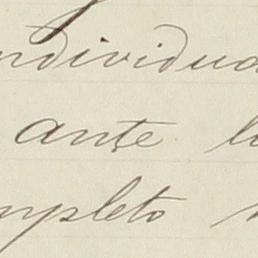 individua
ante l
mpleto